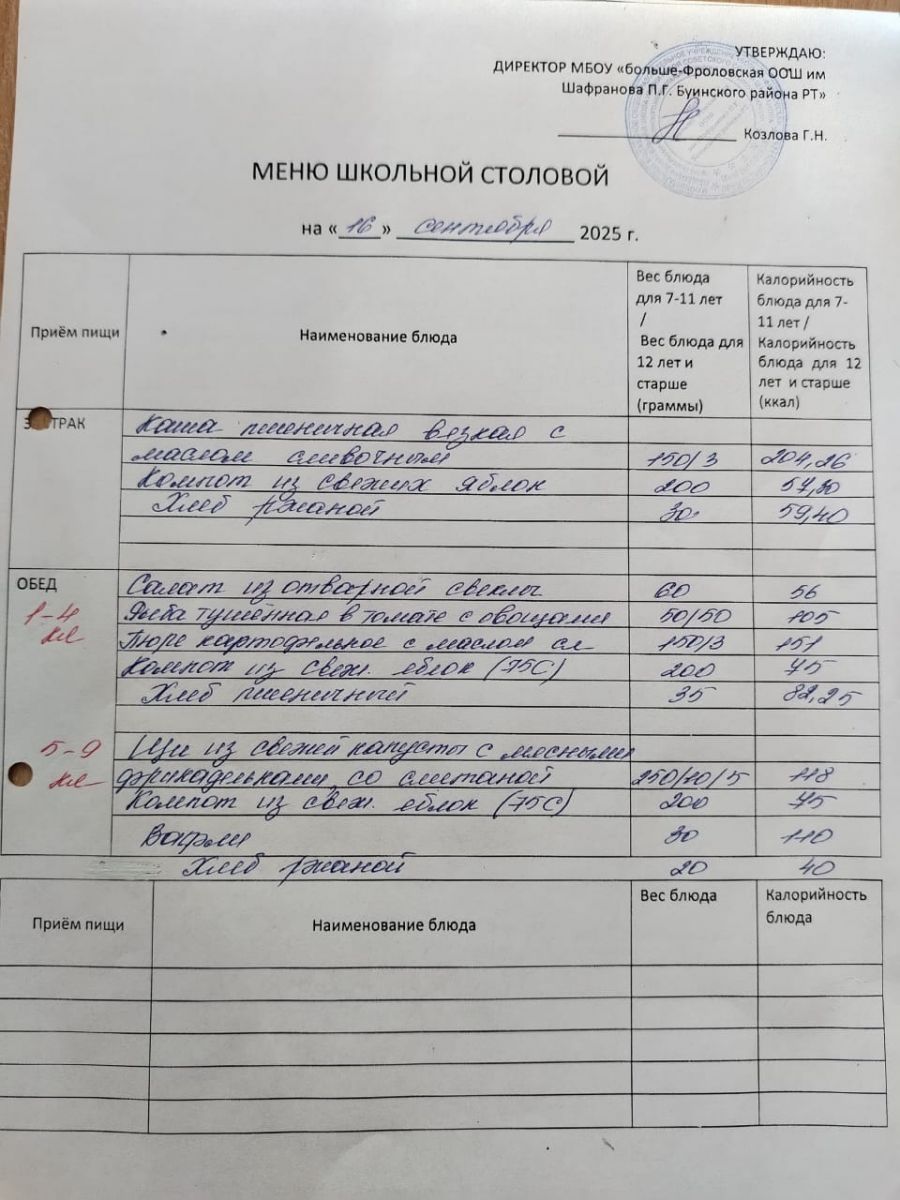 УТВЕРЖДАЮ:
ДИРЕКТОР МБОУ «больше-Фроловская ООШ им
Шафранова П.Г. Буинского района РТ»
Козлова Г.Н.
МЕНЮ ШКОЛЬНОЙ СТОЛОВОЙ
на «16» сентября 2025 г.
Приём пищи
Наименование блюда
Вес блюда
для 7-11 лет
/
Вес блюда для
12 лет и
старше
(граммы)
Калорийность
блюда для 7-
11 лет /
Калорийность
блюда для 12
лет и старше
(ккал)
ЗАВТРАК Каша пшеничная вязкая с
маслом сливочным 150/3 204,26
Компот из свежих яблок 200 57,30
Хлеб ржаной 30 59,40
ОБЕД Салат из отварной свеклы 60 56
1-4 Рыба тушённая в томате с овощами 50/50 105
кл Пюре картофельное с маслом сл 150/3 151
Компот из свеж. яблок (75С) 200 75
Хлеб пшеничный 35 82,25
5-9 Щи из свежей капусты с мясными
кл фрикадельками, со сметаной 250/20/5 118
Компот из свеж. яблок (75С) 200 75
Вафли 30 110
Хлеб ржаной 20 40
Приём пищи
Наименование блюда
Вес блюда
Калорийность
блюда